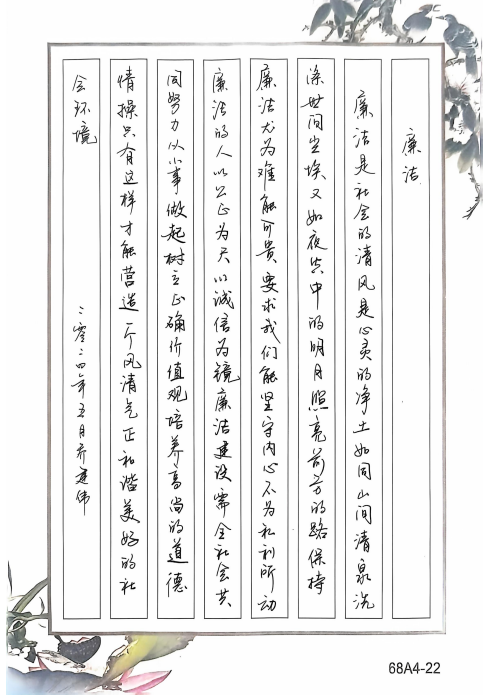 廉洁
廉洁是社会的清风是心灵的净土如同山间清泉洗
涤世间尘埃又如夜空中的明月照亮前方的路保持
廉洁尤为难能可贵要求我们能坚守内心不为私利所动
廉洁的人以公正为尺以诚信为镜廉洁建设需全社会共
同努力从小事做起树立正确价值观培养高尚的道德
情操只有这样才能营造一个风清气正和谐美好的社
会环境
二零二四年五月乔建伟
68A4-22